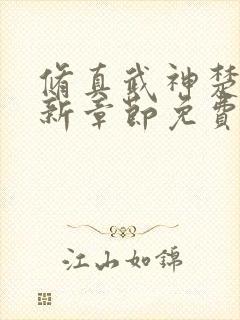 脩真武神楚
新章節免費
江山如錦